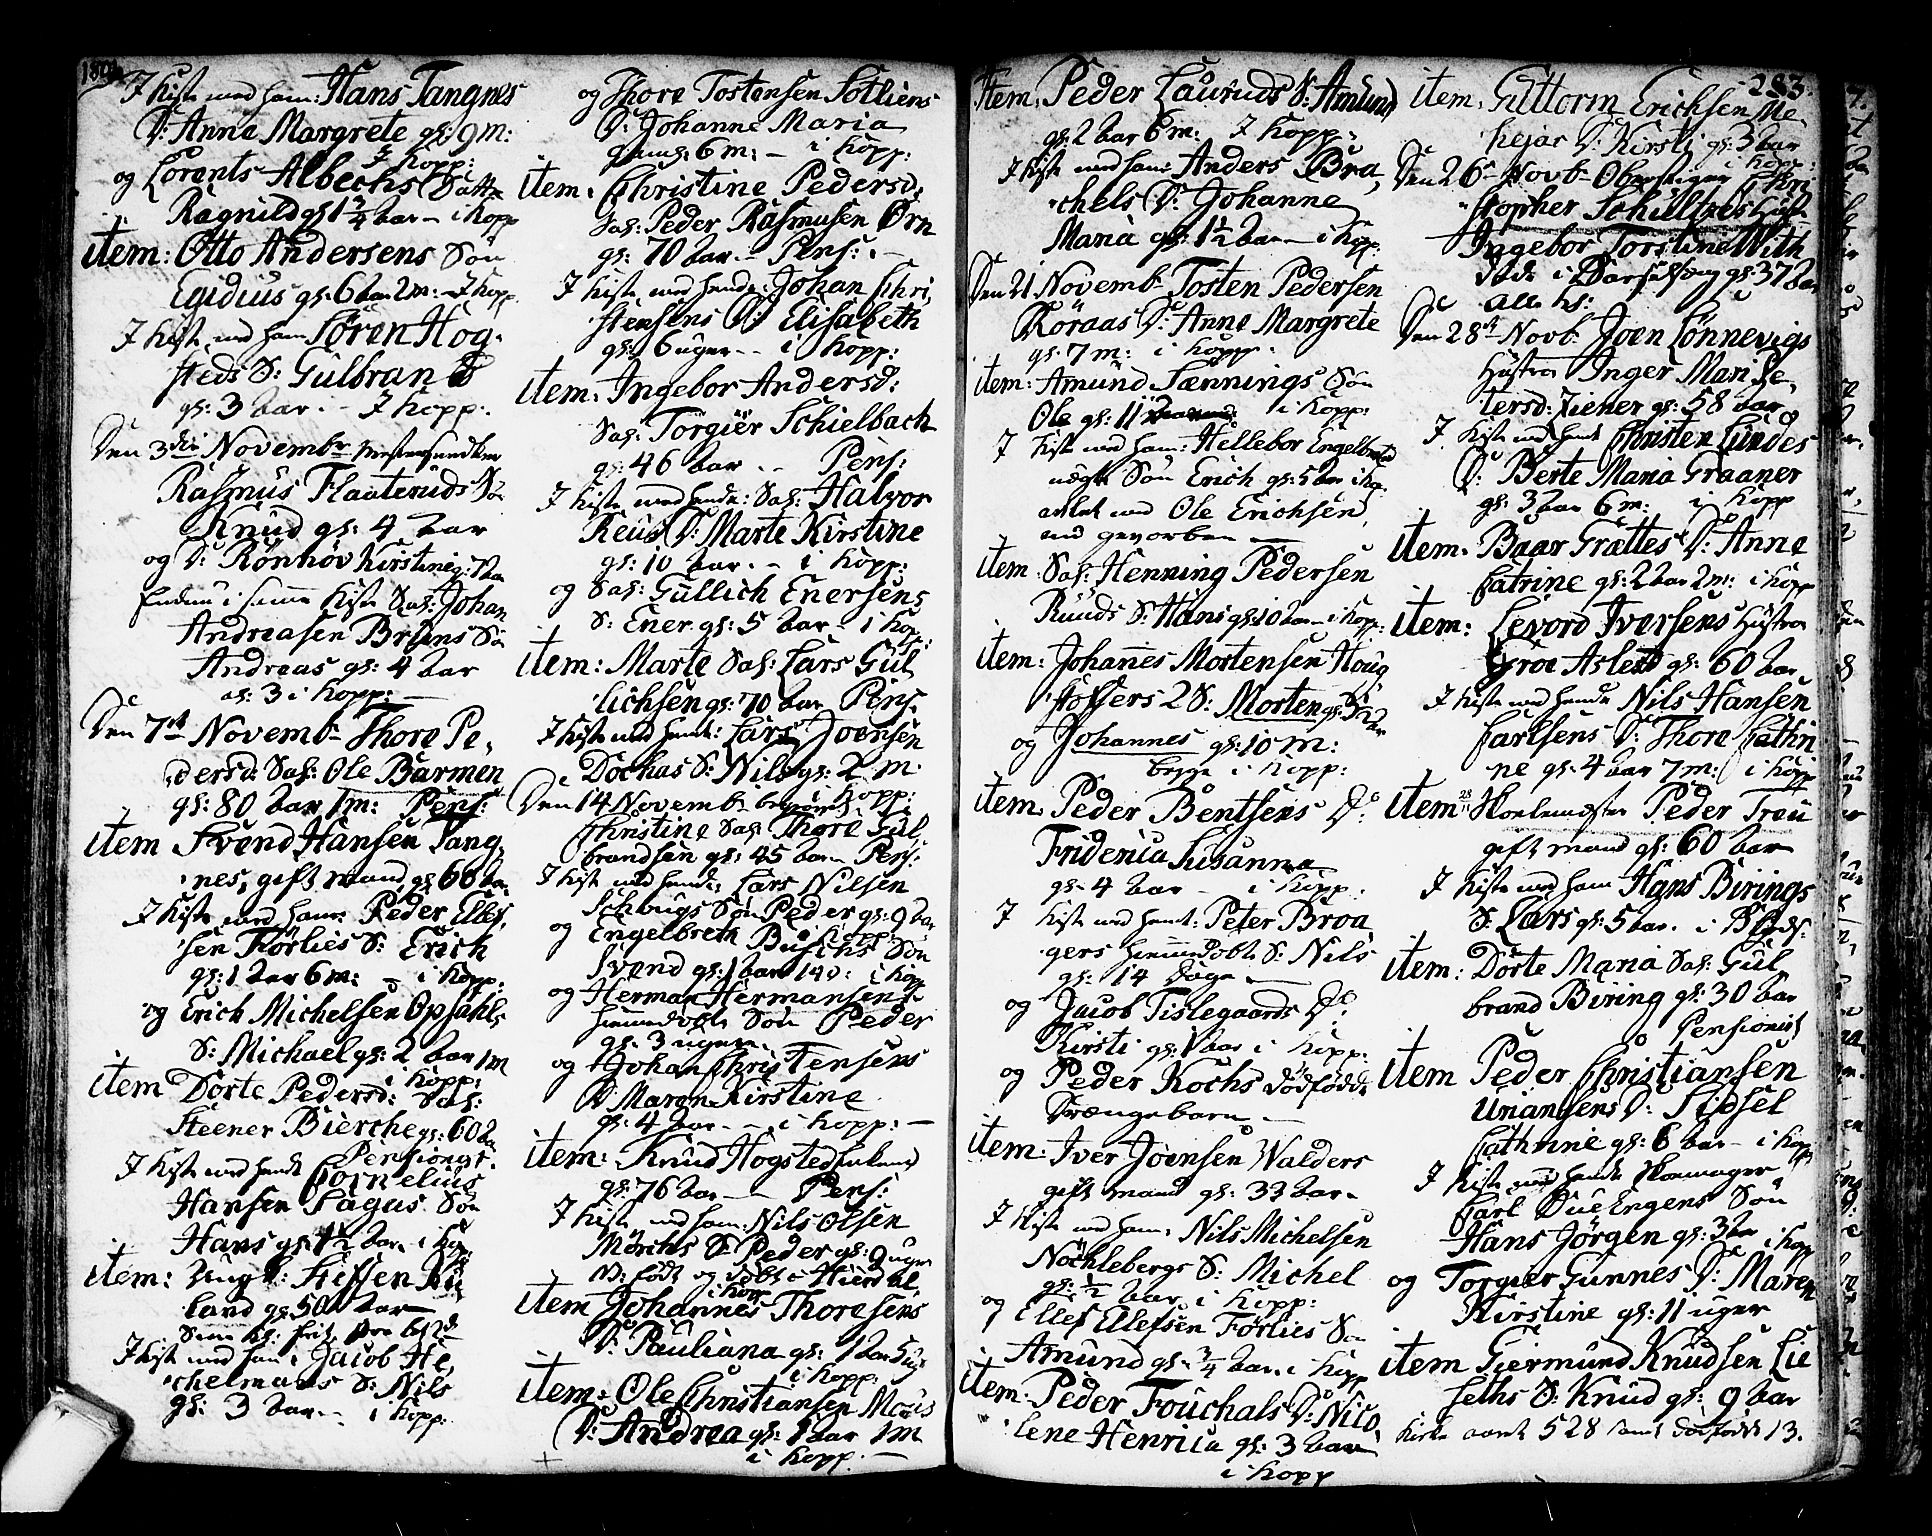 J Kiste med ham: Hans Tangnes
D: Anne Margrete gl: 9 m:
J Kopp:
og Lorents Albechs Datter
Ragnild gl 1 3/4 aar – i Kopp
item: Otto Andersens Søn
Egidius gl: 6 aar 2 m: – J Kopp
J Kiste med ham Søren Hog-
steds S: Gulbran
gl: 3 aar. – J Kopp:
Den 3die Novembr
Rasmus Flaateruds Søn
Knud gl: 4 aar
og D: Rønhov Kirstine
Endnu i samme Kiste Sal: Johan
Andreasen Bruns Søn
Andreas gl: 4 aar
al: 3 i Kopp:
Den 7de Novembr Thore Pe-
dersd: Sal: Ole Barmen
gl: 80 aar 1 m: Pens:
item Svend Hansen Tang-
nes, gift mand gl 66 aar
J Kiste med ham: Peder Ellef-
sen Førlies S: Erich
gl: 1 aar 6 m: – i Kopp:
og Erich Michelsen Opsahls
S: Michael gl: 2 aar 1 m
i Kopp:
item Dorte Pedersd: Sal:
Steener Bierche gl: 60 aar
Pensionist.
J Kiste med hende Cornelius
Hansen Sagas Søn
Hans gl: 1 1/2 aar. i Kop
item: Ungk: Steffen Ru-
land gl: 50 aar
J Kiste med ham: Jacob He-
chelmans S: Nils
gl: 3 aar. – i Kopp:
og Thore Tostensen Sotliens
D: Johanne Maria
gamel: 6 m: – i Kopp:
item. Christine Pedersd:
Sal: Peder Rasmusen Ørn
gl: 70 aar. – Pens: –
J Kiste med hende: Johan Chri-
stensens D: Elisabeth
gl: 6 uger – i Kopp:
item. Ingebor Andersd:
Sal: Torgier Schielbach
gl: 46 aar – Pens:
J Kiste med hende: Sal: Halvor
Reus D: Marte Kirstine
gl: 10 aar. – i Kopp:
og Sal: Gullich Enersens
S: Ener gl: 5 aar – i Kopp:
item: Marte Sal: Lars Gul-
lichsen gl: 70 aar Pens.
J Kiste med hende: Lars Joensen
Dochas S: Nils gl: 2 m.
i Kopp:
Den 14 Novembr
Christine Sal: Thore Gul-
brandsen gl: 45 aar Pens:
J Kiste med hende: Lars Nilsen
Schougs Søn Peder gl: 9 aar
i Kopp:
og Engelbreth Buschs Søn
Svend gl: 1 aar i Kopp
og Herman Hermansens
hiemmedøbte Søn Peder
gl: 3 uger.
og Johan Christensens
D: Maren Kirstine
gl: 4 aar – i Kopp: –
item: Knud Hogsted
gl: 76 aar – Pens:
J Kiste med ham: Nils Olsen
Mørchs S: Peder gl: 9 uger
NB: født og døbt i Hurdal,
i Kopp
item Johannes Thoresens
D: Pauliana gl: 1 aar 5 uger
i Kopp:
item: Ole Christiansen Moens
D: Andrea gl: 1 aar 1 m
i Kopp: –
283.
Item. Peder Lauruds S: Amund
gl: 2 aar 6 m: J Kopp:
J Kiste med ham: Anders Bra-
chels D: Johanne
Maria gl: 1 1/2 aar – i Kop:
Den 21 Novembr Tosten Pedersen
Røraas D: Anne Margrete
gl: 7 m: i Kopp.
item: Amund Sænnings Søn
Ole gl: 11 i Kopp:
J Kiste med ham: Hellebor Engelbretsd
uægte Søn Erich gl: 5 aar i Kop.
avlet med Ole Erichsen,
item Sal: Henning Pedersen
Ruuds S: Hans gl: 10 aar – i Kopp:
item: Johannes Mortensen Houg-
stofsers 2 S: Morten gl: 3 1/2 aar
og Johannes gl: 10 m:
begge i Kopp:
item Peder Bentsens Dr:
Friderica Susanna
gl: 4 aar – i Kopp.
J Kiste med hende: Peter Broa-
gers hiemmedøbte S: Nils
gl: 14 Dage –
og Jacob Tislegaards Dr:
Kirsti gl: 1 aar i Kopp:
og Peder Kochs Dødfødde
Drængebarn –
item: Iver Joensen Walders
gift mand gl: 33 aar.
J Kiste med ham: Nils Michelsen
Nøchlebergs S: Michel
gl: 1/2 aar i Kopp:
og Ellef Ellefsen Førlies Søn
Amund gl: 3/4 aar. i Kopp
item. Peder Fouchals D: Nico-
lene Henrica gl: 3 aar
i Kopp
item. Guttorm Erichsen Me-
hejar D: Kirsti gl: 3 aar
i Kopp:
Den 26 Novb Oberstiger Chri-
stopher Schultzes Hustr
Ingebor Torstine With
død i Barselseng gl: 37 aar
Den 28de Novb. Joen Lonnevigs
Hustroe Inger Marie Pe-
tersd: Ziener gl: 58 aar
J Kiste med hende Christen Lindes
D: Berte Maria Graaner
gl: 3 aar 6 m: i Kopp
item. Baar Grættes D: Anne
Catrine gl: 2 aar 2 m: i Kopp
item: Levord Iversens Hustroe
Groe Aslesd gl: 60 aar
J Kiste med hende Nils Hansen
Carlsens D: Thore Cathri-
ne gl: 4 aar 7 m: i Kopp
item Skoelemester Peder Treu
gift mand gl: 60 aar
J Kiste med ham Hans Birings
S. Lars gl: 5 aar. i
item: Dorte Maria Sal: Gul-
brand Biring gl: 30 aar
Pensionist
item Peder Christiansen
Uriansens D: Sidsel
Cathrine gl: 6 aar – i Kopp
J Kiste med hende Skomager
Carl Due Engens Søn
Hans Jørgen gl: 3 aar i Kopp
og Torgier Gunnes D: Maren
Kirstine gl: 11 uger
item Giermund Knudsen Lie-
seths S: Knud gl: 9 aar
528 samt Dødfødde 13.